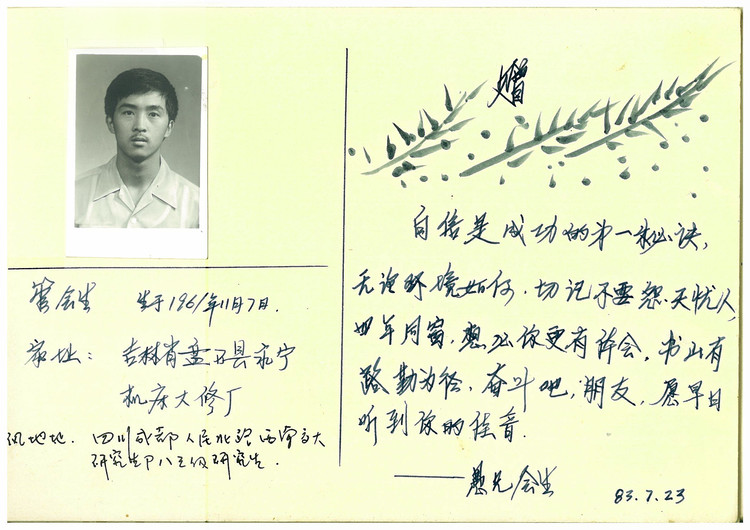 会生 生于1961年11月7日.
家址: 吉林省盘石县永宁
机床大修厂
现地址. 四川成都人民北路西南交大
研究生部八三级研究生.
赠
自信是成功的第一秘诀,
无论环境如何. 切记不要怨天忧人,
四年同窗, 想必你更有体会, 书山有
路勤为径, 奋斗吧, 朋友, 愿早日
听到你的佳音.
——愚兄 会生
83.7.23